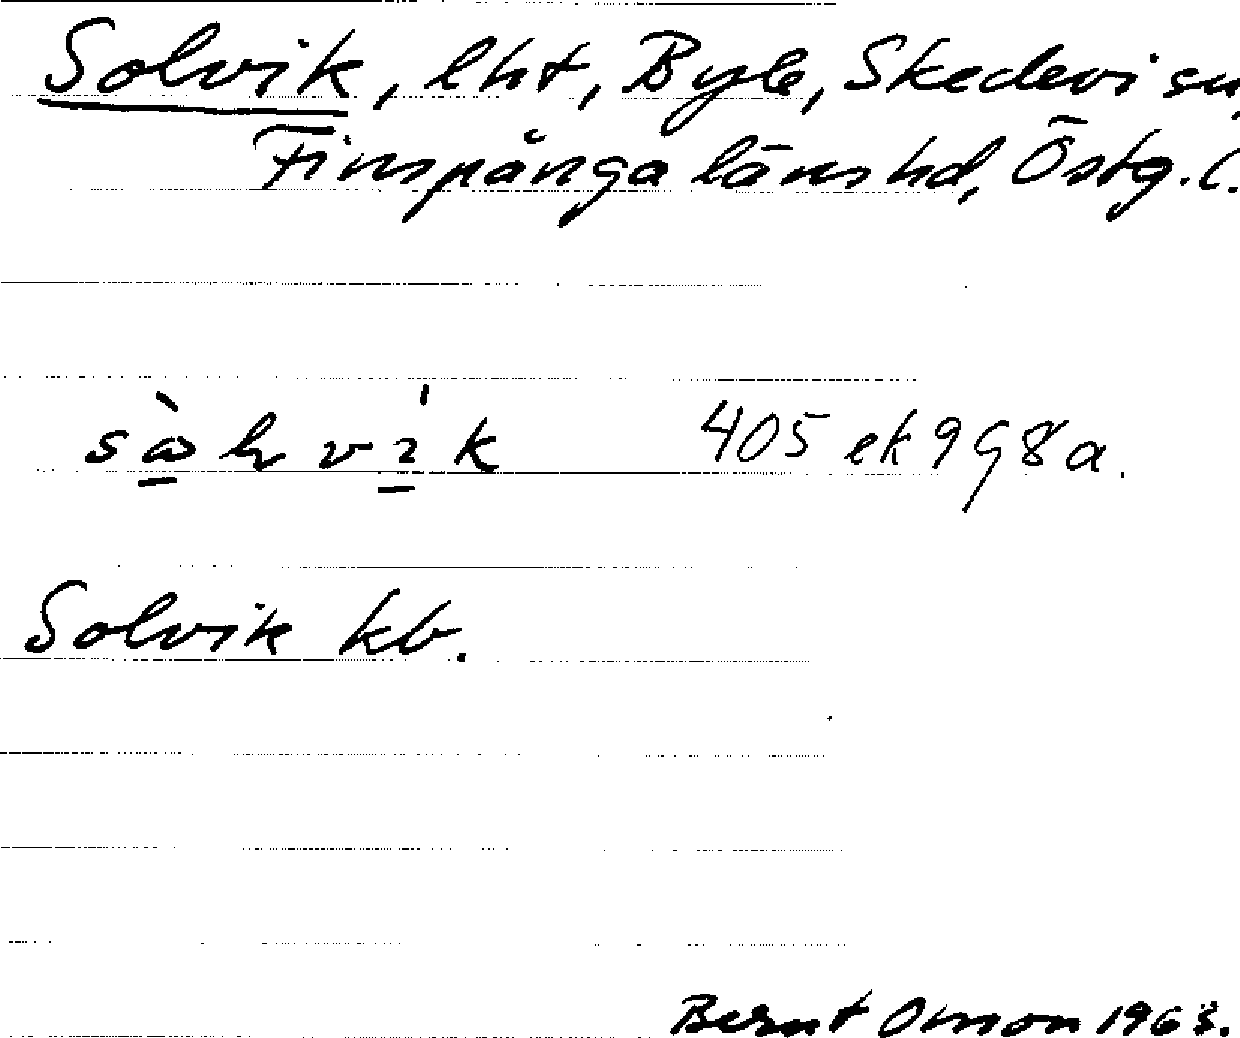 Solvik, lht, Byle, Skedevi sn,
Finspånga läns hd, Östg. l.
405 ek 9 G 8 a.
Solvik kb.
Bernt Olsson